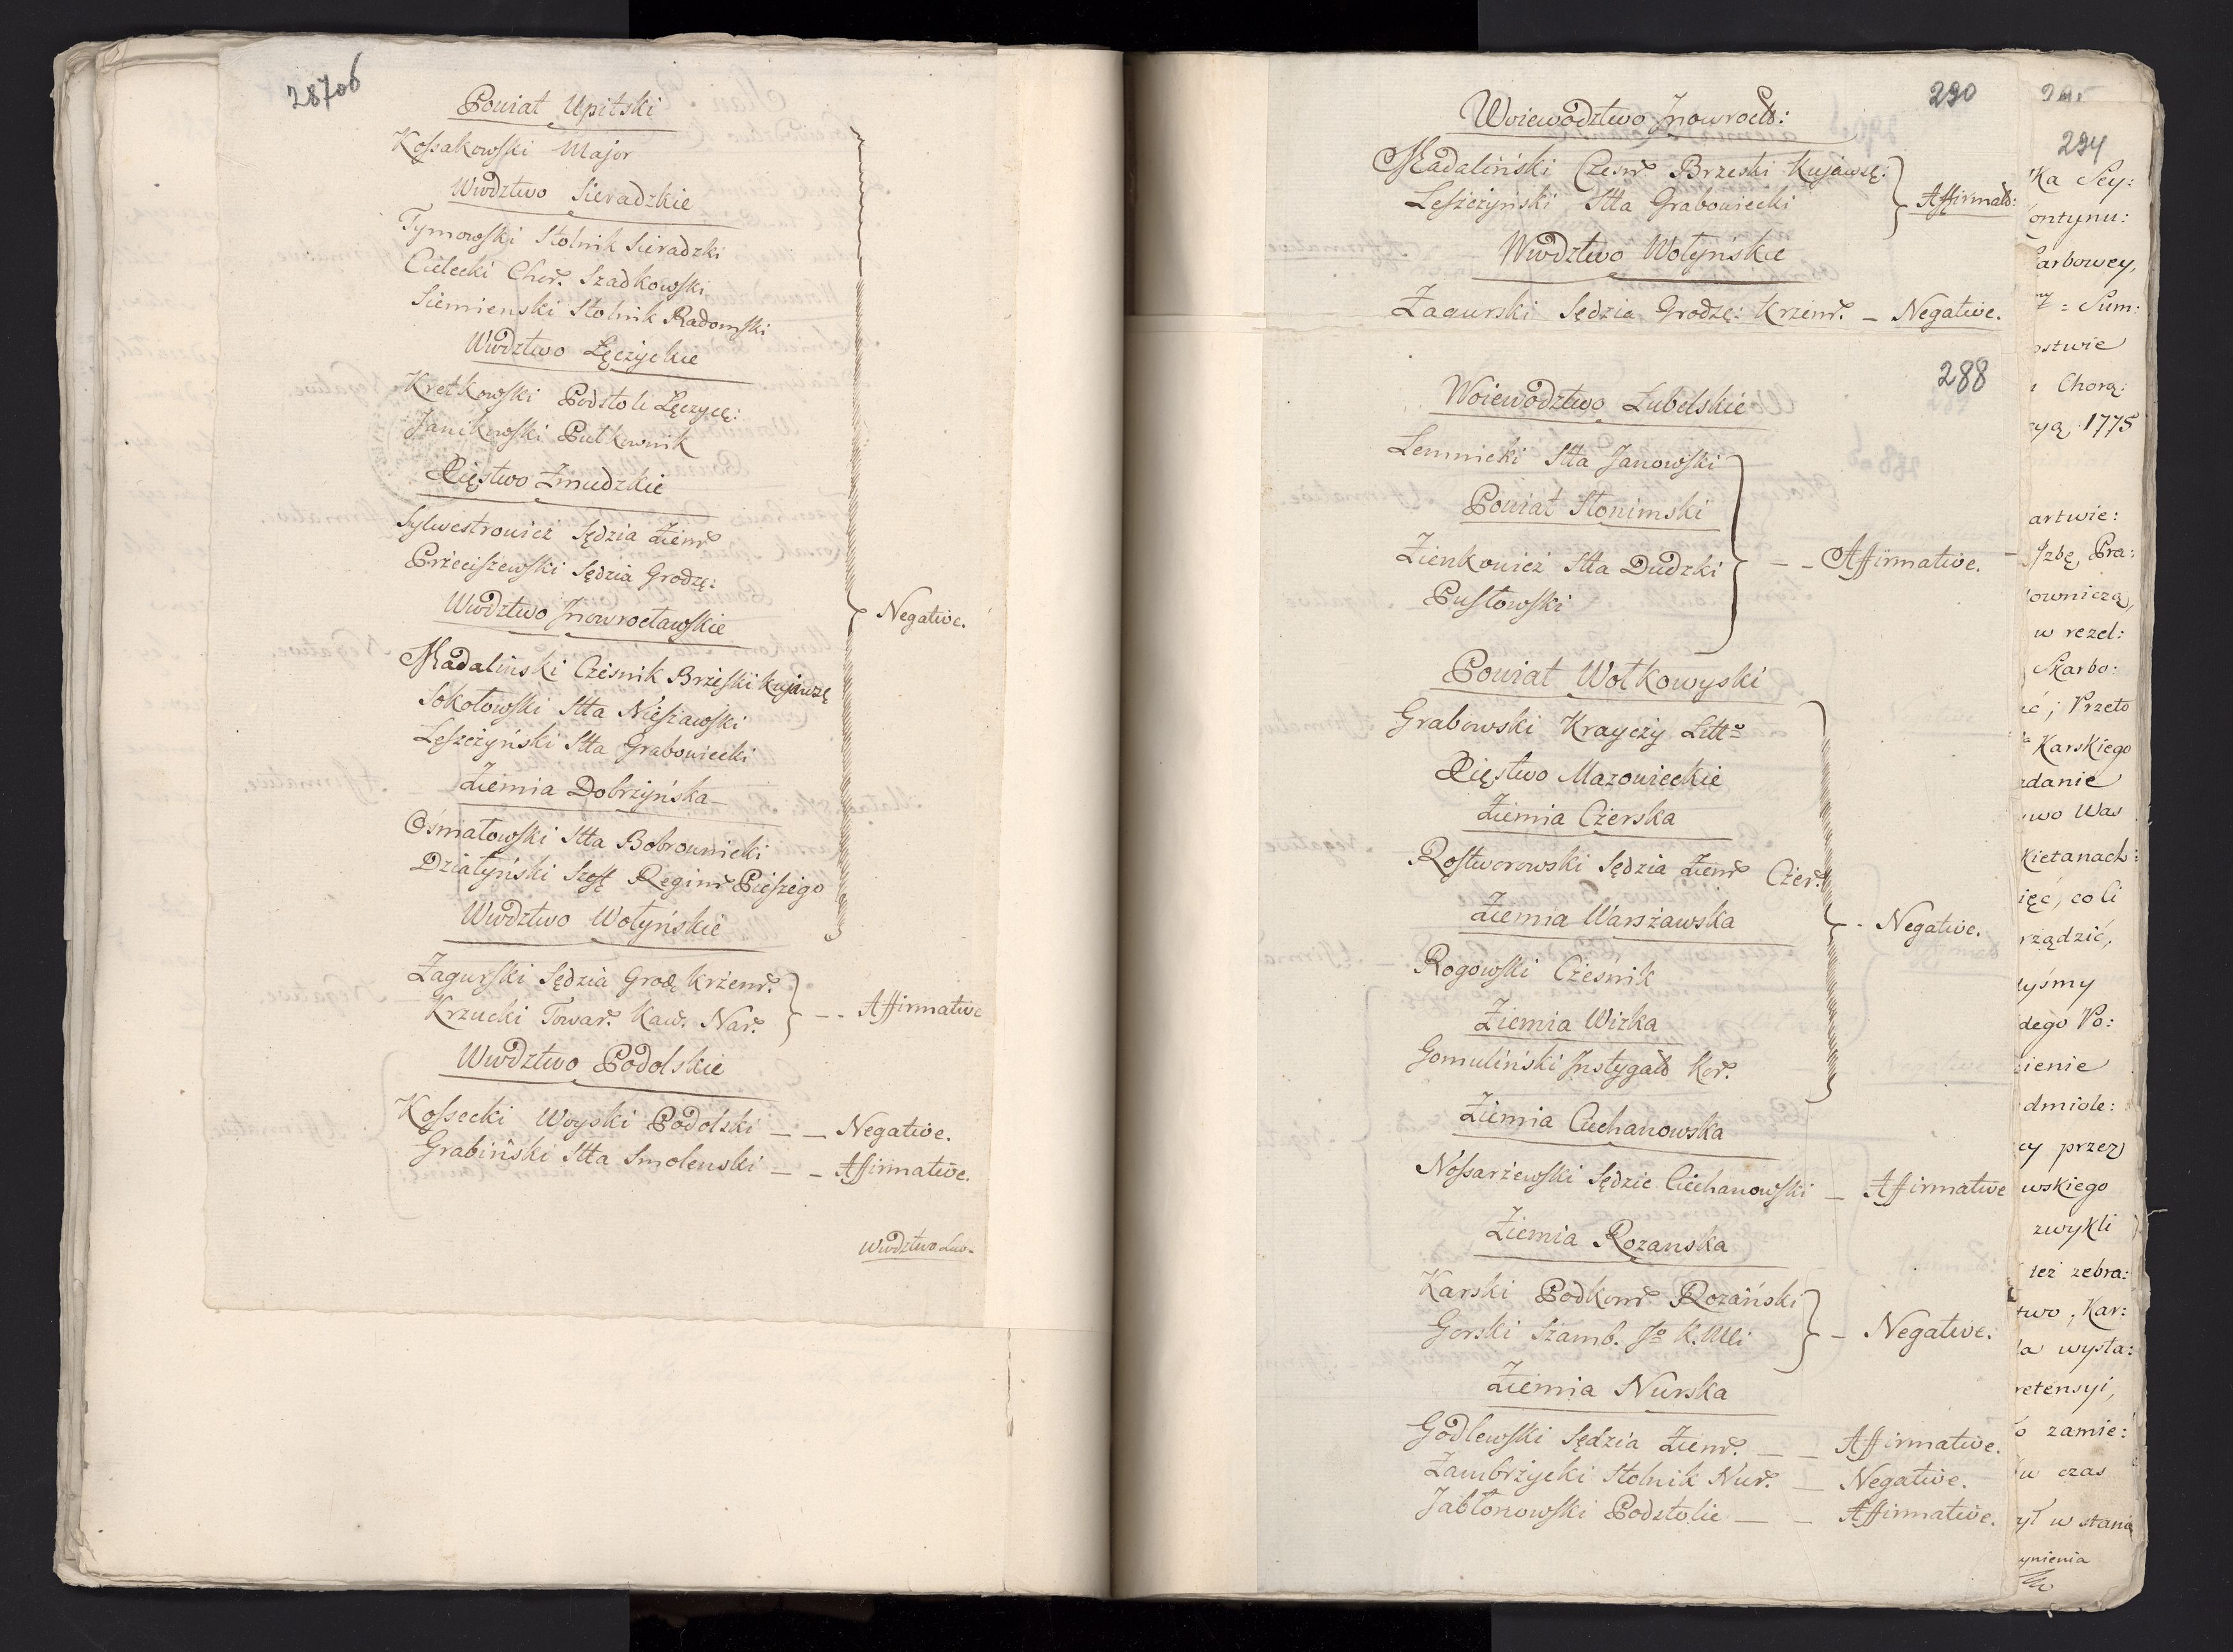 287ob
Powiat Upitski
Kossakowski Major
Wwdztwo Sieradzkie
Tymowski Stolnik Sieradzki
Cielecki Chor. Szadkowski
Siemienski Stolnik Radomski
Wwdztwo Łęczyckie
Kretkowski Podstoli Łęczycę:
Janikowski Pułkownik
Xięstwo Żmudzkie
Sylwestrowicz Sędzia Ziem.
Przeciszewski Sędzia Grodz:
Wwdztwo Jnowrocławskie
Madalinski Cześnik Brzeski Kujawz.
Sokołowski Stta Nieszawski
Leszczyński Stta Grabowiecki
Ziemia Dobrzyńska
Ośmiałowski Stta Bobrownicki
Działyński Szeff Regim. Pieszego
Negative.
Wwdztwo Wołyńskie
Zagurski Sędzia Grod. Krzem.
Krzucki Towar. Kaw. Nar.
-- Affirmative
Wwdztwo Podolskie
Kossecki Woyski Podolski -- Negative.
Grabiński Stta Smolenski -- Affirmative.
Wwdztwo Lub-
290
Woiewodztwo Jnowrocł:
Madaliński Czesn. Brzeski Kujawsę:
Leszczyński Stta Grabowiecki
Affirmat:
Wwdztwo Wołyńskie
Zagurski Sędzia Grodzę: Krzem. - Negative.
288
Woiewodztwo Lubelskie
Lemnicki Stta Janowski
Powiat Słonimski
Zienkowicz Stta Dudzki
-- Affirmative.
Pusłowski
Powiat Wołkowyski
Grabowski Krayczy Litt.
Xięstwo Mazowieckie
Ziemia Czerska
Rostworowski Sędzia Ziem. Czer.
Ziemia Warszawska
-- Negative.
Rogowski Cześnik
Ziemia Wizka
Gomuliński Jnstygat. Kor.
Ziemia Ciechanowska
Nossarzewski Sędzic Ciechanowski - Affirmative
Ziemia Rozanska
Karski Podkom. Rozański
Gorski Szamb. Jo K. Mci
- Negative.
Ziemia Nurska
Godlewski Sędzia Ziem. -- Affirmative.
Zambrzycki Stolnik Nur. - Negative.
Jabłonowski Podstolic -- Affirmative.
294
ka Sey:
ontynu:
arbowey,
= Sum:
ostwie
Chorą:
1775
artwie:
Jzbę Pra:
owniczą,
w rezel:
Skarbo:
ić; Przeto
Karskiego
zdanie
wo Was
kietanach:
ięc, co li
rządzić,
yśmy
dego Po:
ienie
dmiole:
cy przez
wskiego
zwykli
też zebra:
two, Kar:
la wysta:
retensyi,
o zamie:
w czas
ył w stanie
ynienia